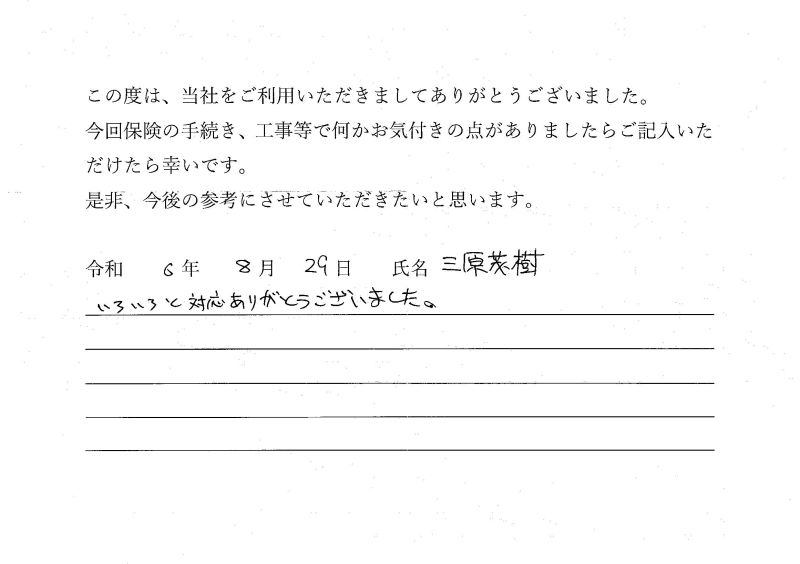 この度は、当社をご利用いただきましてありがとうございました。
今回保険の手続き、工事等で何かお気付きの点がありましたらご記入いた
だけたら幸いです。
是非、今後の参考にさせていただきたいと思います。
令和 6 年 8 月 29 日 氏名 三原茂樹
いろいろと対応ありがとうございました。